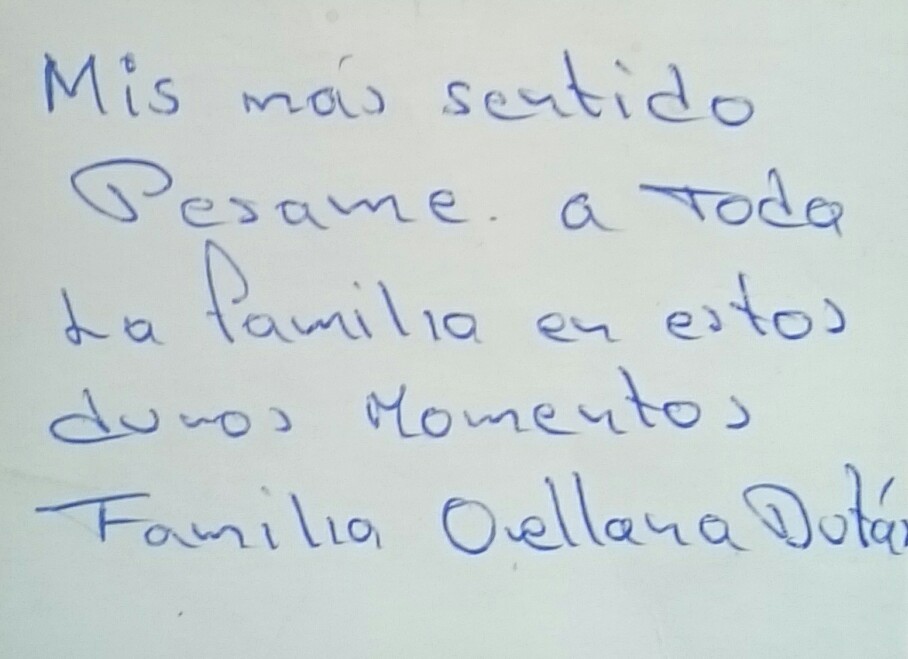 Mis más sentido
Pesame. a Toda
La familia en estos
duros Momentos
Familia Orellana